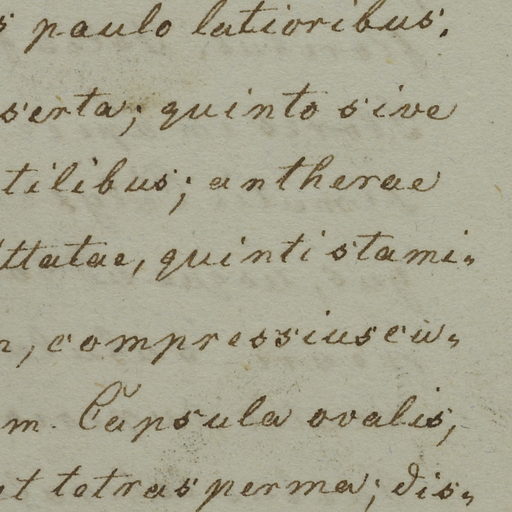 s paulo latioribus.
serta; quinto sive
tilibus; antherae
ttatae, quinti stami-
n, compressiuscu-
m. Capsula ovalis,
et tetrasperma; dis-